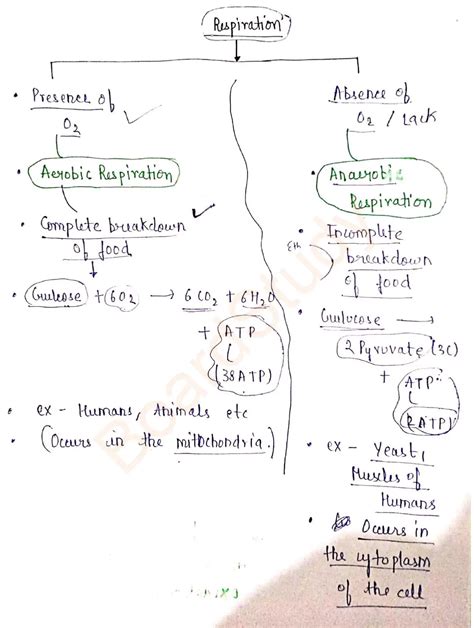 Respiration
• Presence of
O2
• Aerobic Respiration
• Complete breakdown
of food
• Gulcose + 6O2 → 6CO2 + 6H2O
+ ATP
(38ATP)
• ex - Humans, Animals etc
• (Occurs in the mitochondria.)
• Absence of
O2 / Lack
• Anaerobic
Respiration
• Incomplete
Eth
breakdown
of food
• Gulucose →
2 Pyruvate (3C)
+ ATP
(2ATP)
• ex - Yeast,
Muscles of
Humans
• Occurs in
the cytoplasm
of the cell
Board Study